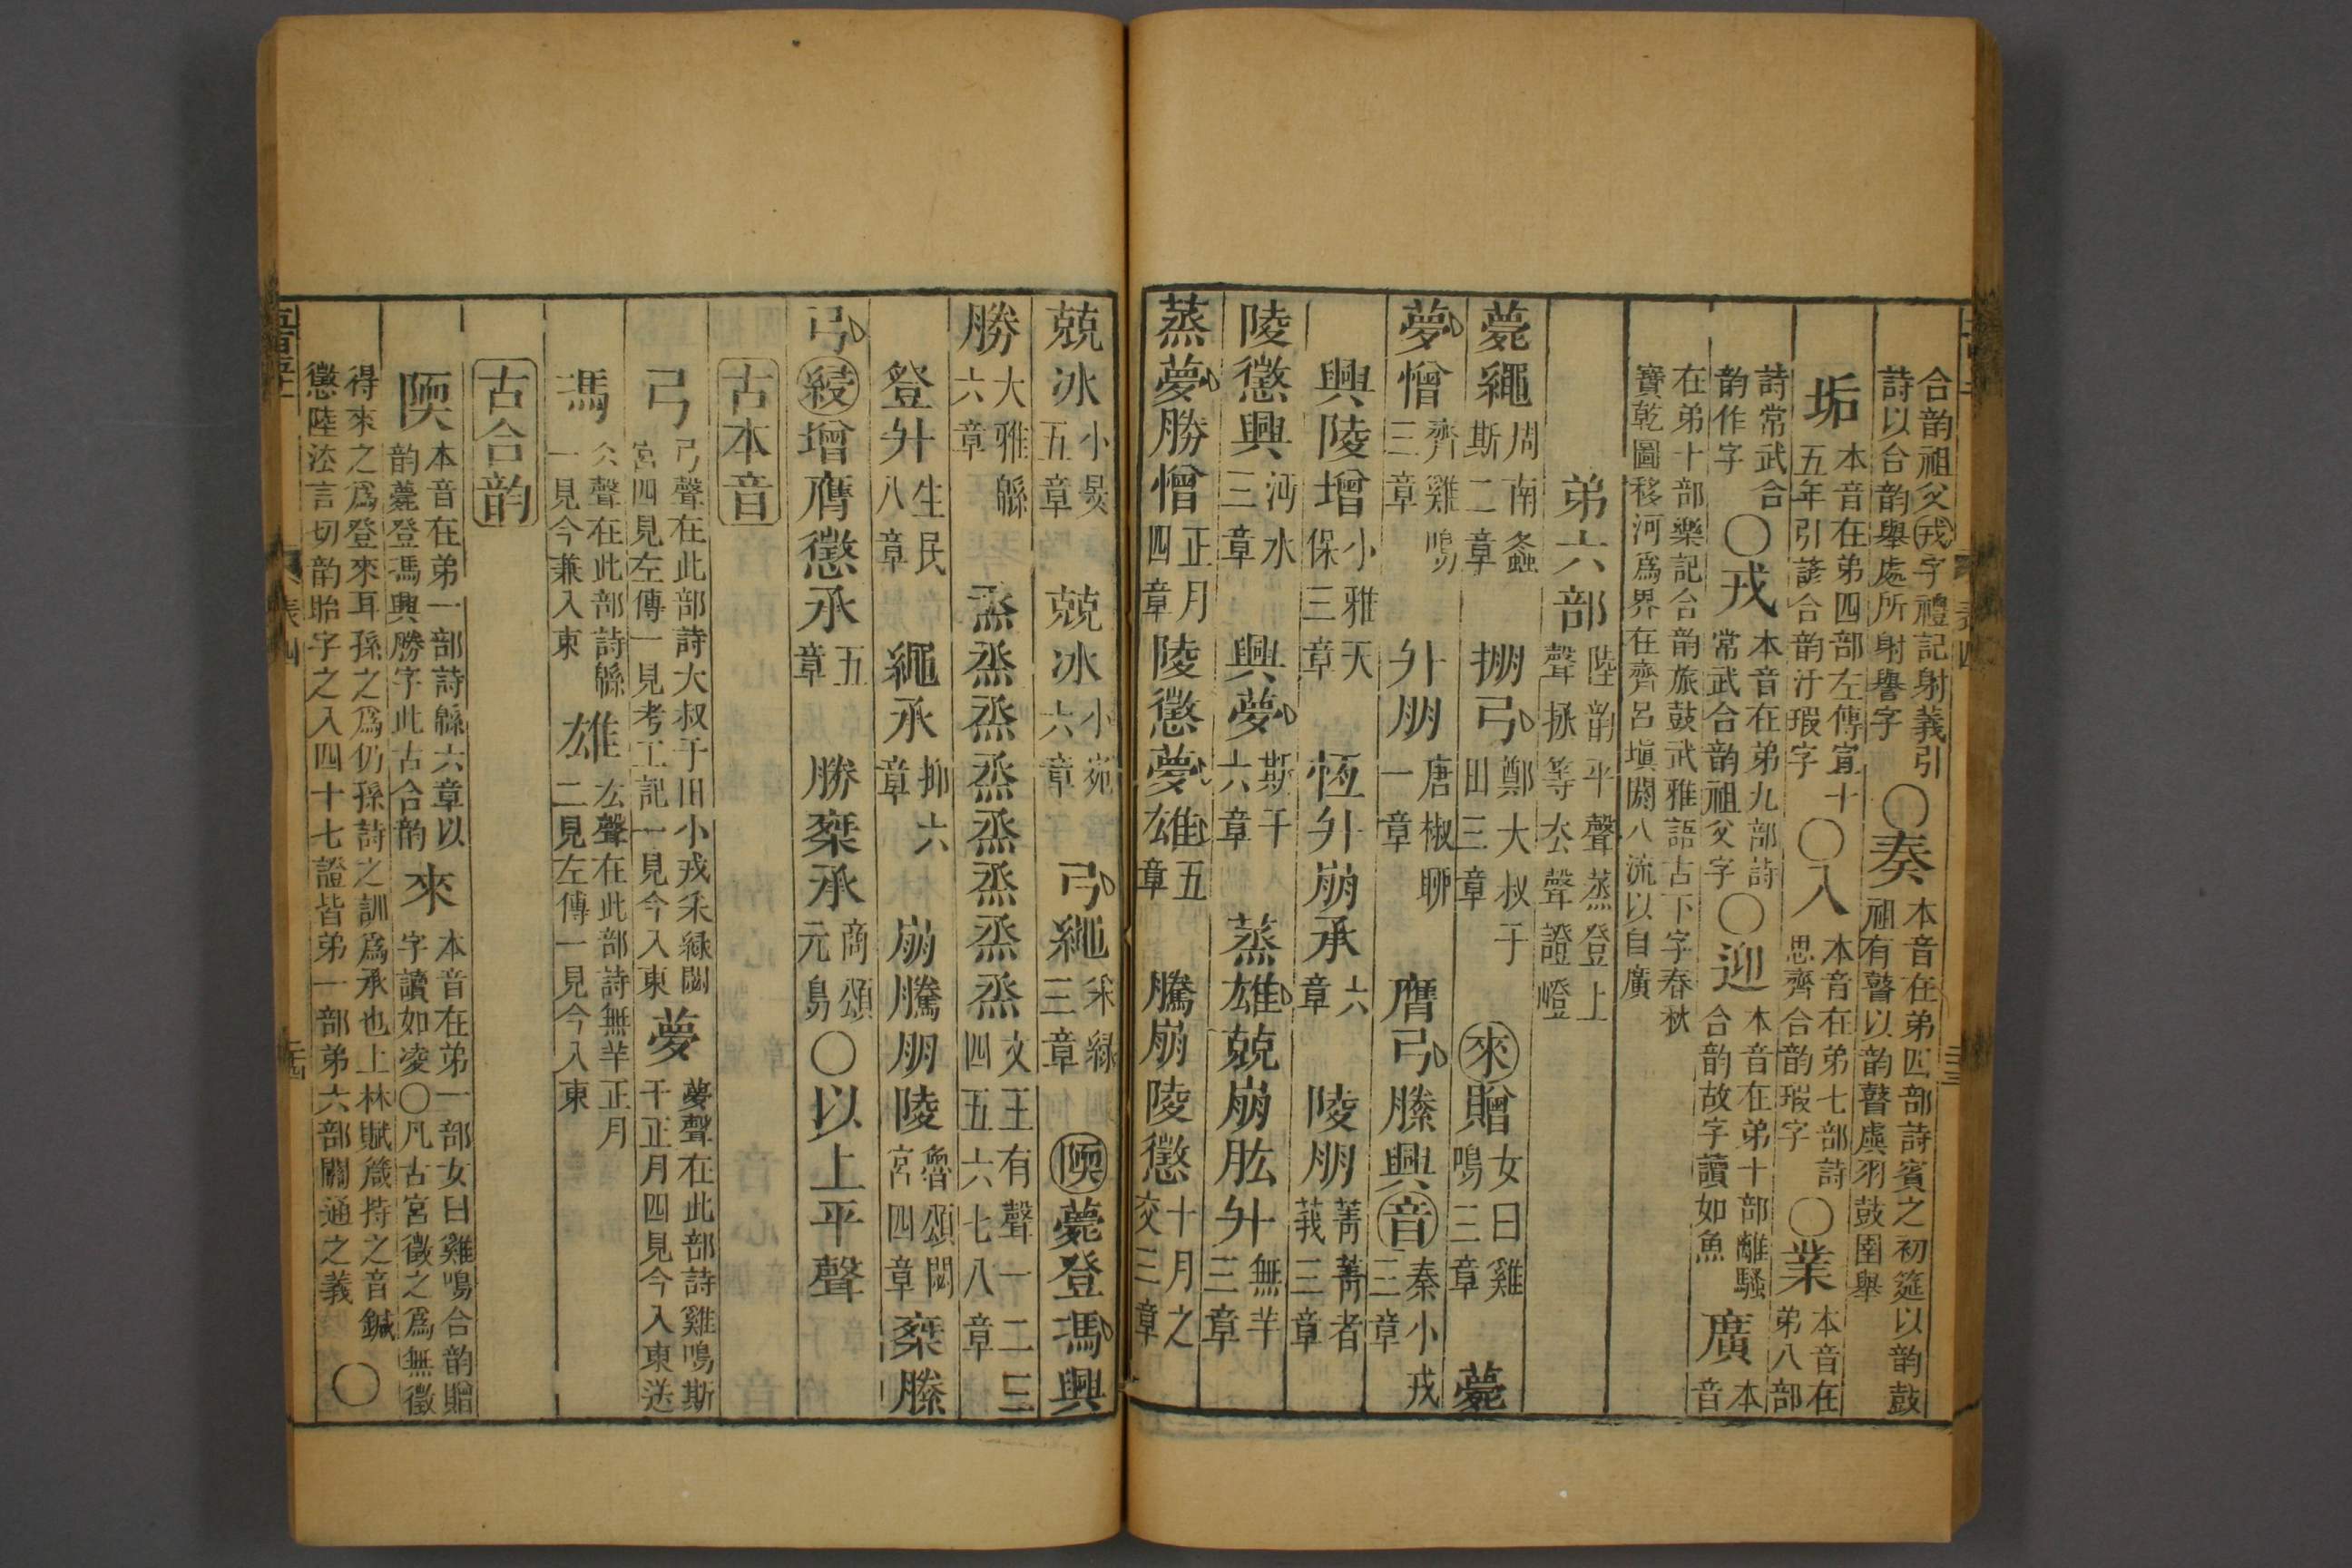 合韵祖父戎字禮記射義引詩以合韵舉處所射譽字〇奏本音在弟四部詩賓之初筵以韵鼓祖有瞽以韵瞽虞羽鼓圉舉
垢本音在弟四部左傳宣十五年引諺合韵汙瑕字〇入本音在弟七部詩思齊合韵瑕字〇業本音在弟八部
詩常武合韵作字〇戎本音在弟九部詩常武合韵祖父字〇迎本音在弟十部離騷合韵故字讀如魚廣本音
在弟十部樂記合韵旅鼓武雅語古下字春秋寶乾圖移河爲界在齊呂塡閼八流以自廣
弟六部陸韵平聲蒸登上聲拯等厺聲證嶝
薨繩周南螽斯二章掤弓鄭大叔于田三章來贈女曰雞鳴三章薨
夢憎齊雞鳴三章升朋唐椒聊一章膺弓縢興音秦小戎三章
興陵增小雅天保三章恆升崩承六章陵朋菁菁者莪三章
陵懲興沔水三章興夢斯干六章蒸雄兢崩肱升無羊三章
蒸夢勝憎正月四章陵懲夢雄五章騰崩陵懲十月之交三章
兢冰小旻五章兢冰小宛六章弓繩采綠三章陾薨登馮興
勝大雅緜六章烝烝烝烝烝烝烝烝文王有聲一二三四五六七八章
登升生民八章繩承抑六章崩騰朋陵魯頌閟宮四章乘縢
弓綅增膺懲承五章勝乘承商頌元鳥〇以上平聲
古本音
弓弓聲在此部詩大叔于田小戎采緑閟宮四見左傳一見考工記一見今入東夢夢聲在此部詩雞鳴斯干正月四見今入東送
馮仌聲在此部詩緜一見今兼入東雄厷聲在此部詩無羊正月二見左傳一見今入東
古合韵
陾本音在弟一部詩緜六章以韵薨登馮興勝字此古合韵來本音在弟一部女曰雞鳴合韵贈字讀如凌〇凡古宮徵之爲無徵
得來之爲登來耳孫之爲仍孫詩之訓爲承也上林賦葴持之音鍼懲陸法言切韵眙字之入四十七證皆弟一部弟六部關通之義〇